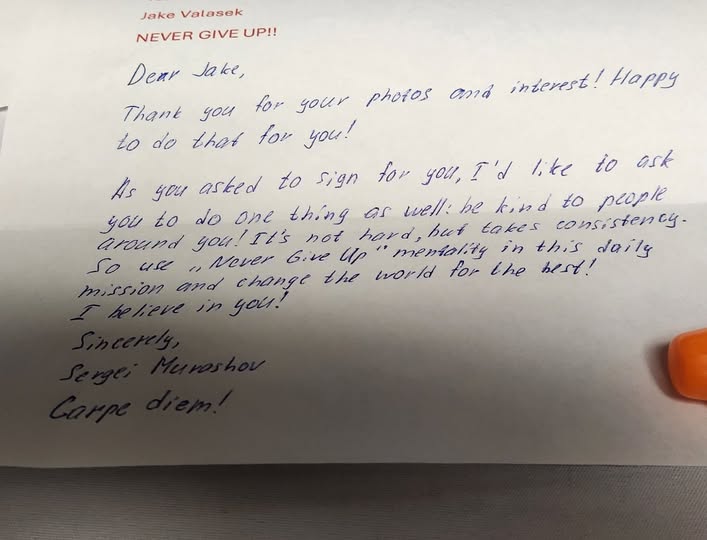 Jake Valasek
NEVER GIVE UP!!
Dear Jake,
Thank you for your photos and interest! Happy
to do that for you!
As you asked to sign for you, I'd like to ask
you to do one thing as well: be kind to people
around you! It's not hard, but takes consistency.
So use „Never Give Up" mentality in this daily
mission and change the world for the best!
I believe in you!
Sincerely,
Sergei Murashov
Carpe diem!